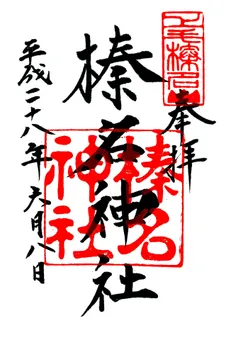 上毛榛名
奉拝
榛名神社
榛名
神社
平成二十八年六月八日